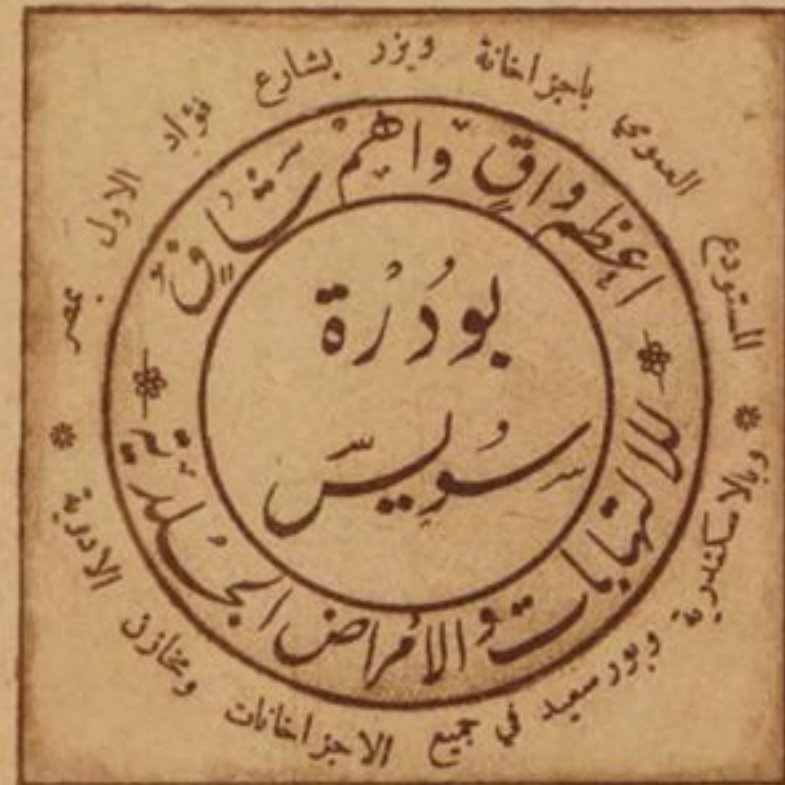 بُودُرة
سُويس
اعظم واقٍ واهم شافٍ
للالتهابات والأمراض الجلدية
المستودع العمومي باجزاخانة ويزر بشارع فؤاد الاول بمصر
وبالاسكندرية وبورسعيد في جميع الاجزاخانات ومخازن الادوية